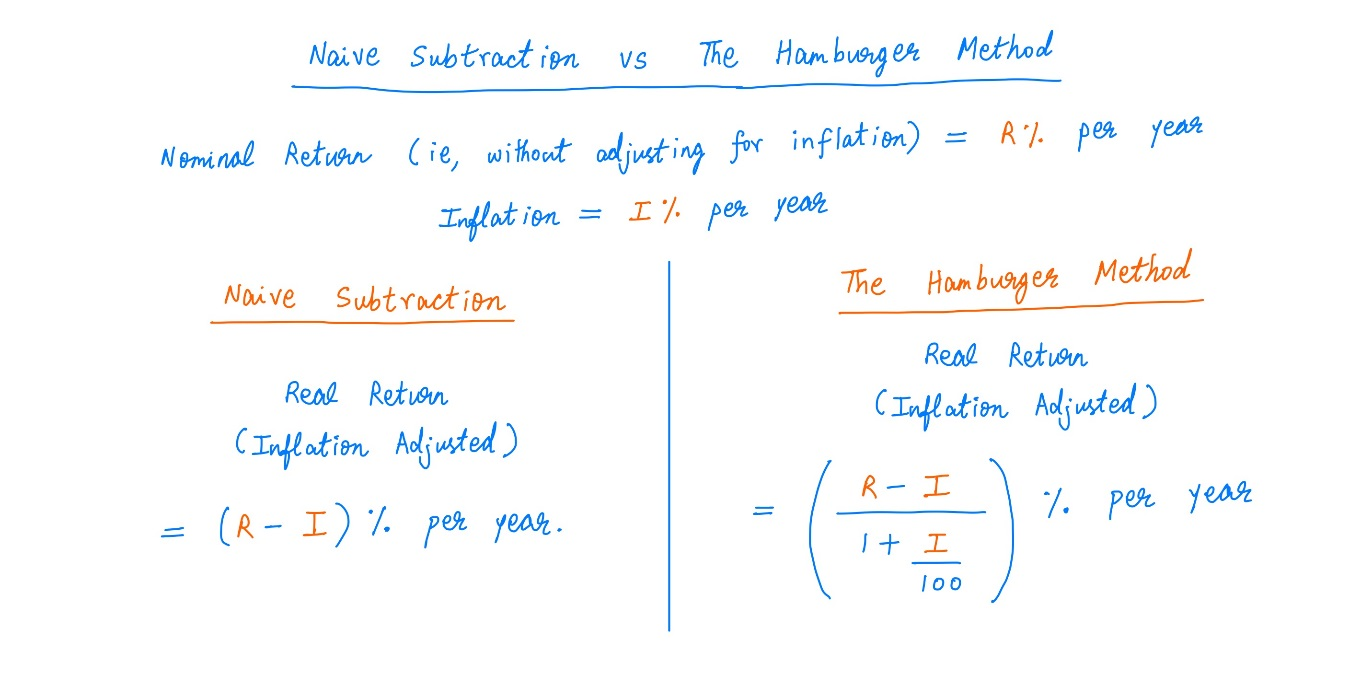 Naive Subtraction vs The Hamburger Method
Nominal Return (ie, without adjusting for inflation) = R% per year
Inflation = I% per year
Naive Subtraction
Real Return
(Inflation Adjusted)
= (R - I) % per year.
The Hamburger Method
Real Return
(Inflation Adjusted)
= ( (R - I) / (1 + I/100) ) % per year